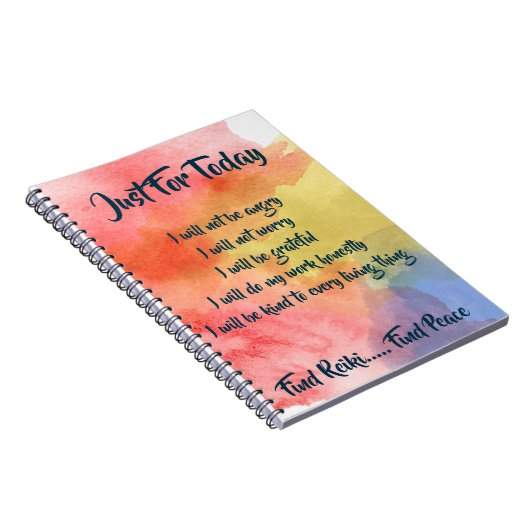 Just For Today
I will not be angry
I will not worry
I will be grateful
I will do my work honestly
I will be kind to every living thing
Find Reiki.....Find Peace